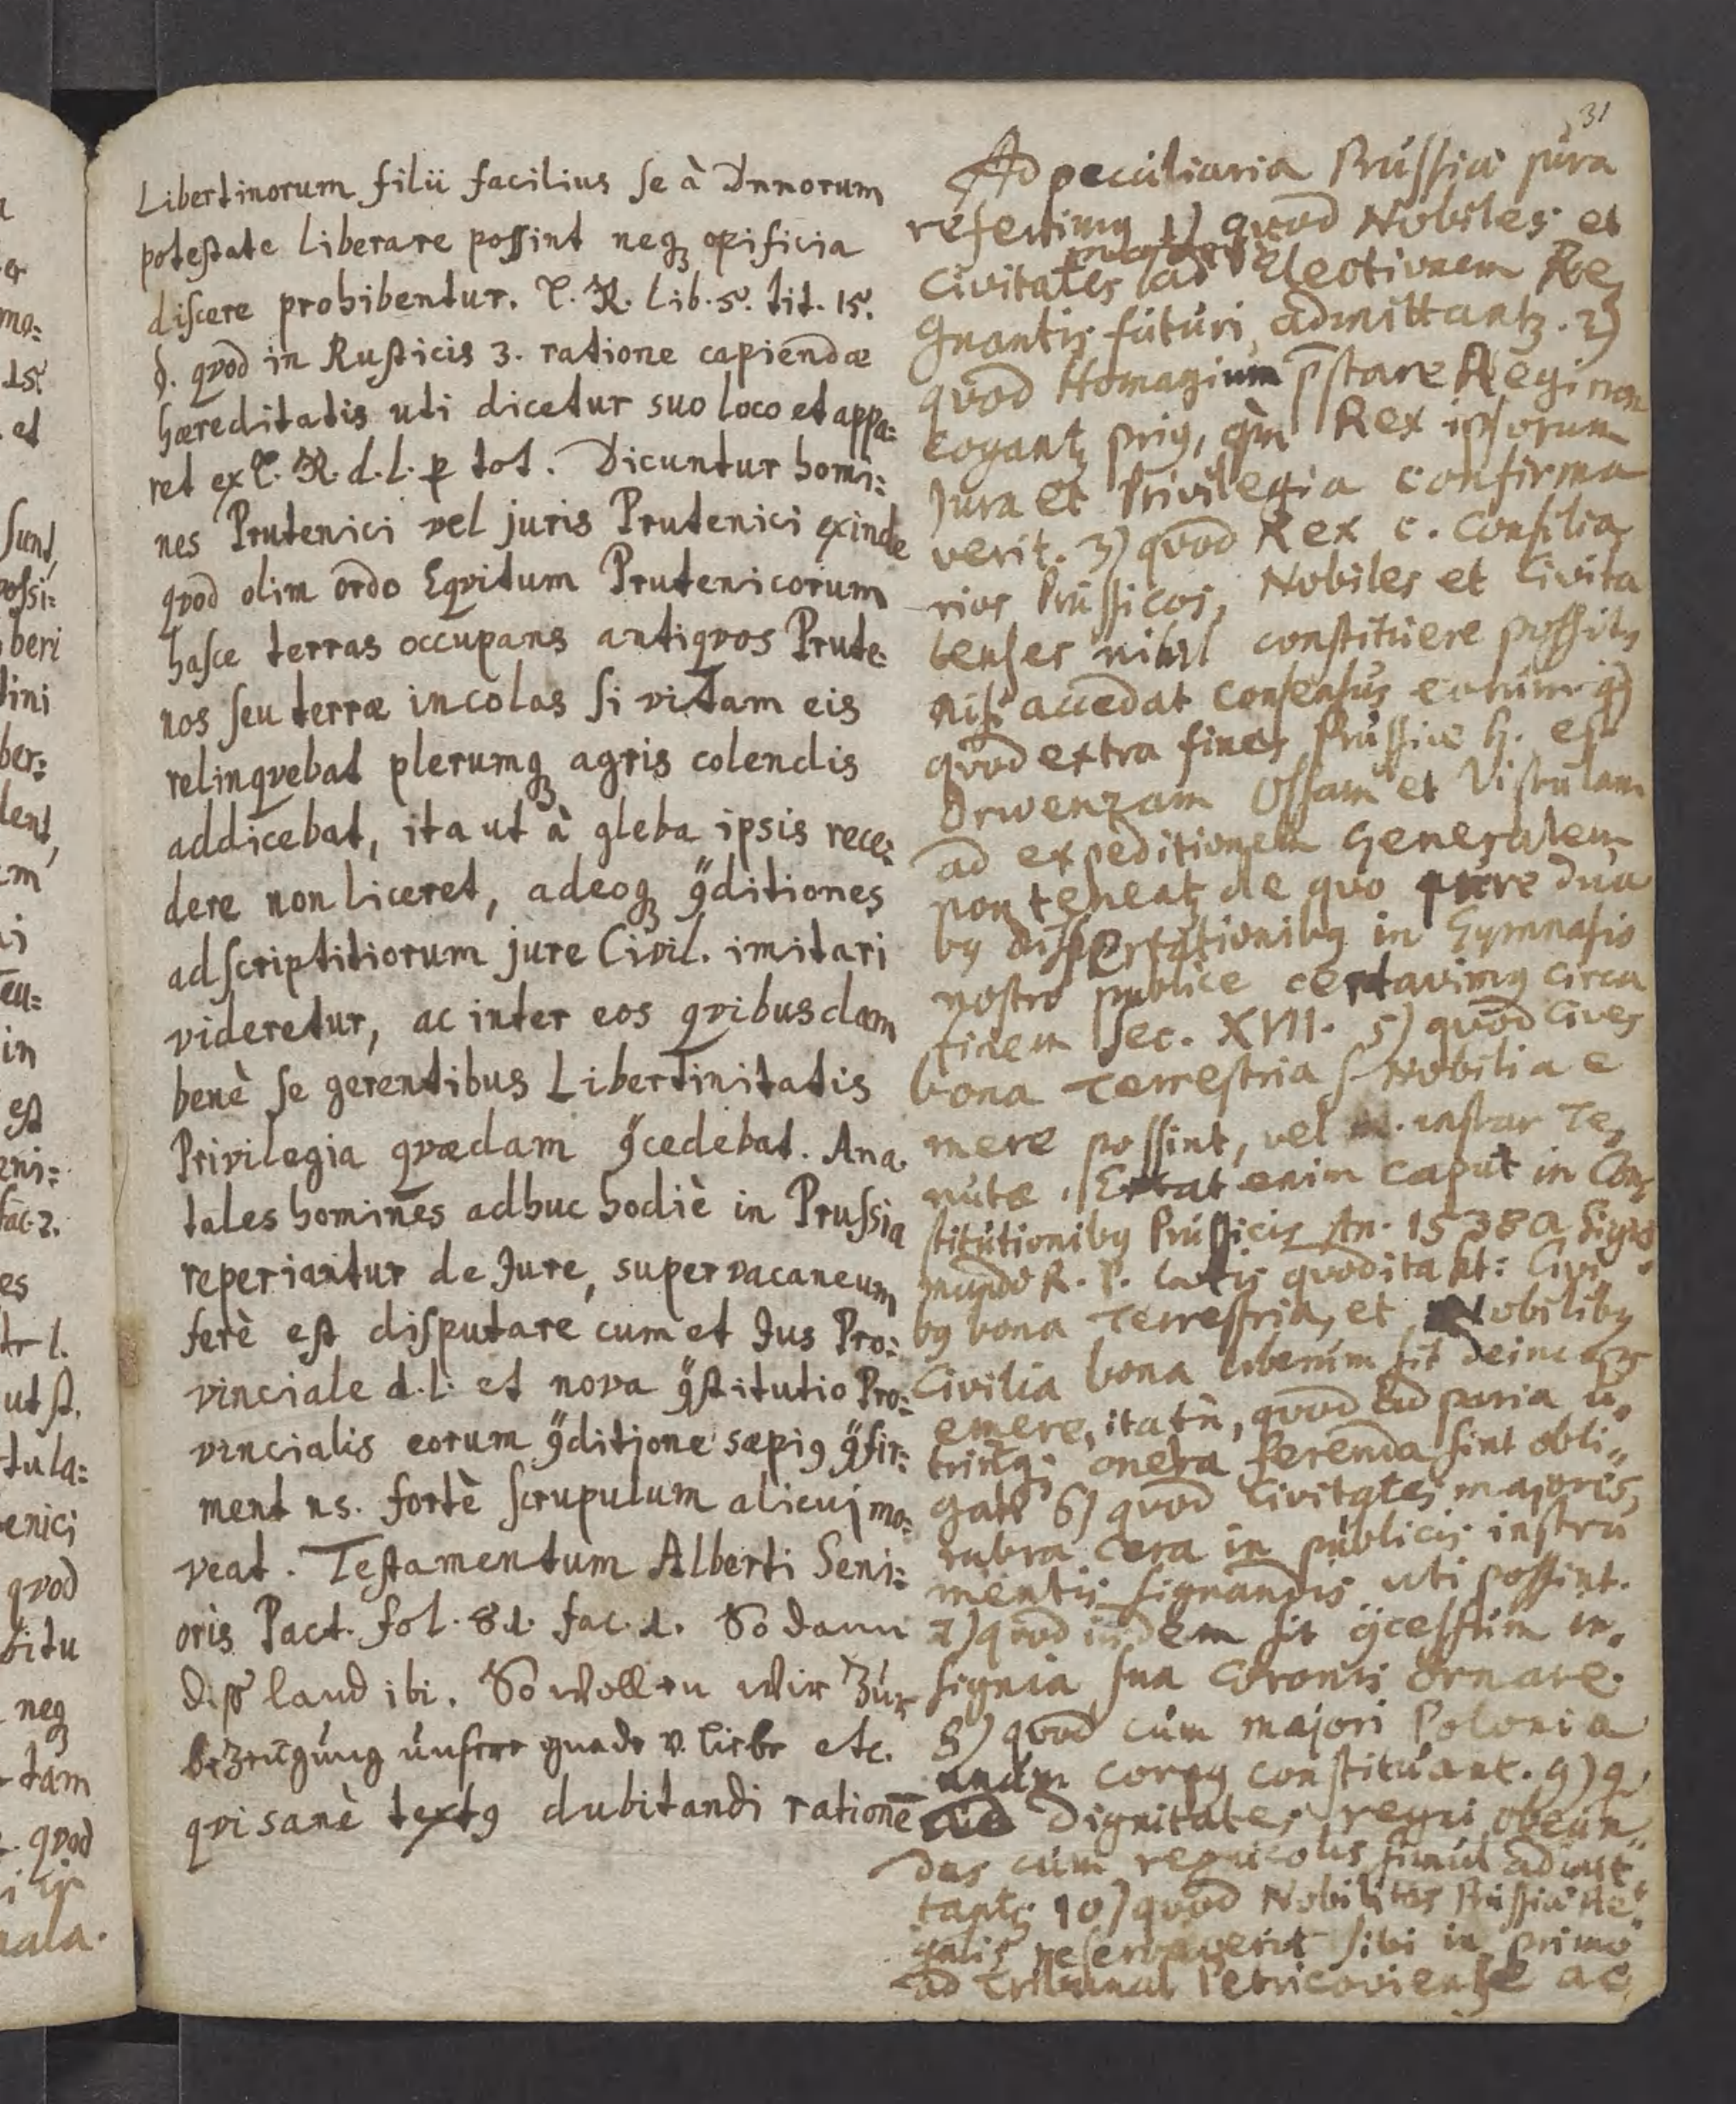 31
Libertinorum filii facilius se à Dnnorum
potestate liberare possint neq; opificia
discere prohibentur. L. R. Lib. 5. tit. 15.
§. qvod in Rusticis 3. ratione capiendæ
hæreditatis uti dicetur suo loco et appa:
ret ex L. R. d. l. p tot. Dicuntur homi:
nes Prutenici vel juris Prutenici exinde
qvod olim ordo Eqvitum Prutenicorum
hasce terras occupans antiqvos Prute:
nos seu terræ incolas si vitam eis
relinqvebat plerumq; agris colendis
addicebat, ita ut à gleba ipsis rece:
dere non liceret, adeoq; 9ditiones
adscriptitiorum jure Civil. imitari
videretur, ac inter eos qvibusdam
benè se gerentibus Libertinitatis
Privilegia qvædam 9cedebat. An a.
tales homines adhuc hodiè in Prussia
reperiantur de Jure, supervacaneum
ferè est disputare cum et Jus Pro:
vinciale d. l. et nova 9stitutio Pro:
vincialis eorum 9ditione sæpi9 9fir:
ment ns. fortè scrupulum alicui mo:
veat. Testamentum Alberti Seni:
oris Pact. fol. 81. fac. 1. So dann
diß land ibi. So wollen wir zúr
bezeugúng únserer gnade v. liebe etc.
qvi sanè text9 dubitandi rationē
Ad peculiaria Prússiæ júra
referim9 1) quod Nobiles et
Civitates ad Electionem Re,
gnantis fútúri admittant;. 2)
quod Homagium p̄stare Regi non
cogant; pri9, qm̀ Rex ipsorum
Jura et Privilegia confirma
verit. 3) quod Rex c. Consilia,
rios Prússicos, Nobiles et Civita
tenses nihil constitúere possit,
nisi accedat consensús eorúm. 4)
quod extra fines Prússiæ h. est
Drwenzam Ossam et Vistulam
ad expeditionem Generalem
non teneat; de quo jure dua
b9 dissertationib9 in Gymnasio
nostro publice certavim9 circa
finem Sec. XVII. 5) quod Cives
bona Terrestria s. Nobilia e
mere possint, vel instar Te,
nútæ. Extat enim Caput in Con,
stitútionib9 Prússicis An. 1538 a Sigis,
múndo R. P. latis quod ita ht: Civi,
b9 bona Terrestria, et Nobilib9
Civilia bona liberúm sit deinceps
emere, ita tn̄, quod ad paria ú,
triúsq; onera ferenda sint obli,,
gati 6) quod Civitates majores,
rubra cera in públicis instrú
mentis signandis uti possint.
7) quod iisdem sit 9cessúm in,
signia sua Coronis Ornare.
8) quod cúm majori Polonia
unúm corp9 constitúant. 9) q.
ad Dignitates regni obeún,,
das cúm regnicolis simúl admit
tant;. 10) quod Nobilitas Prússiæ Re,,
galis reservaverit sibi in primo
ad Tribúnal Petricoviense ac